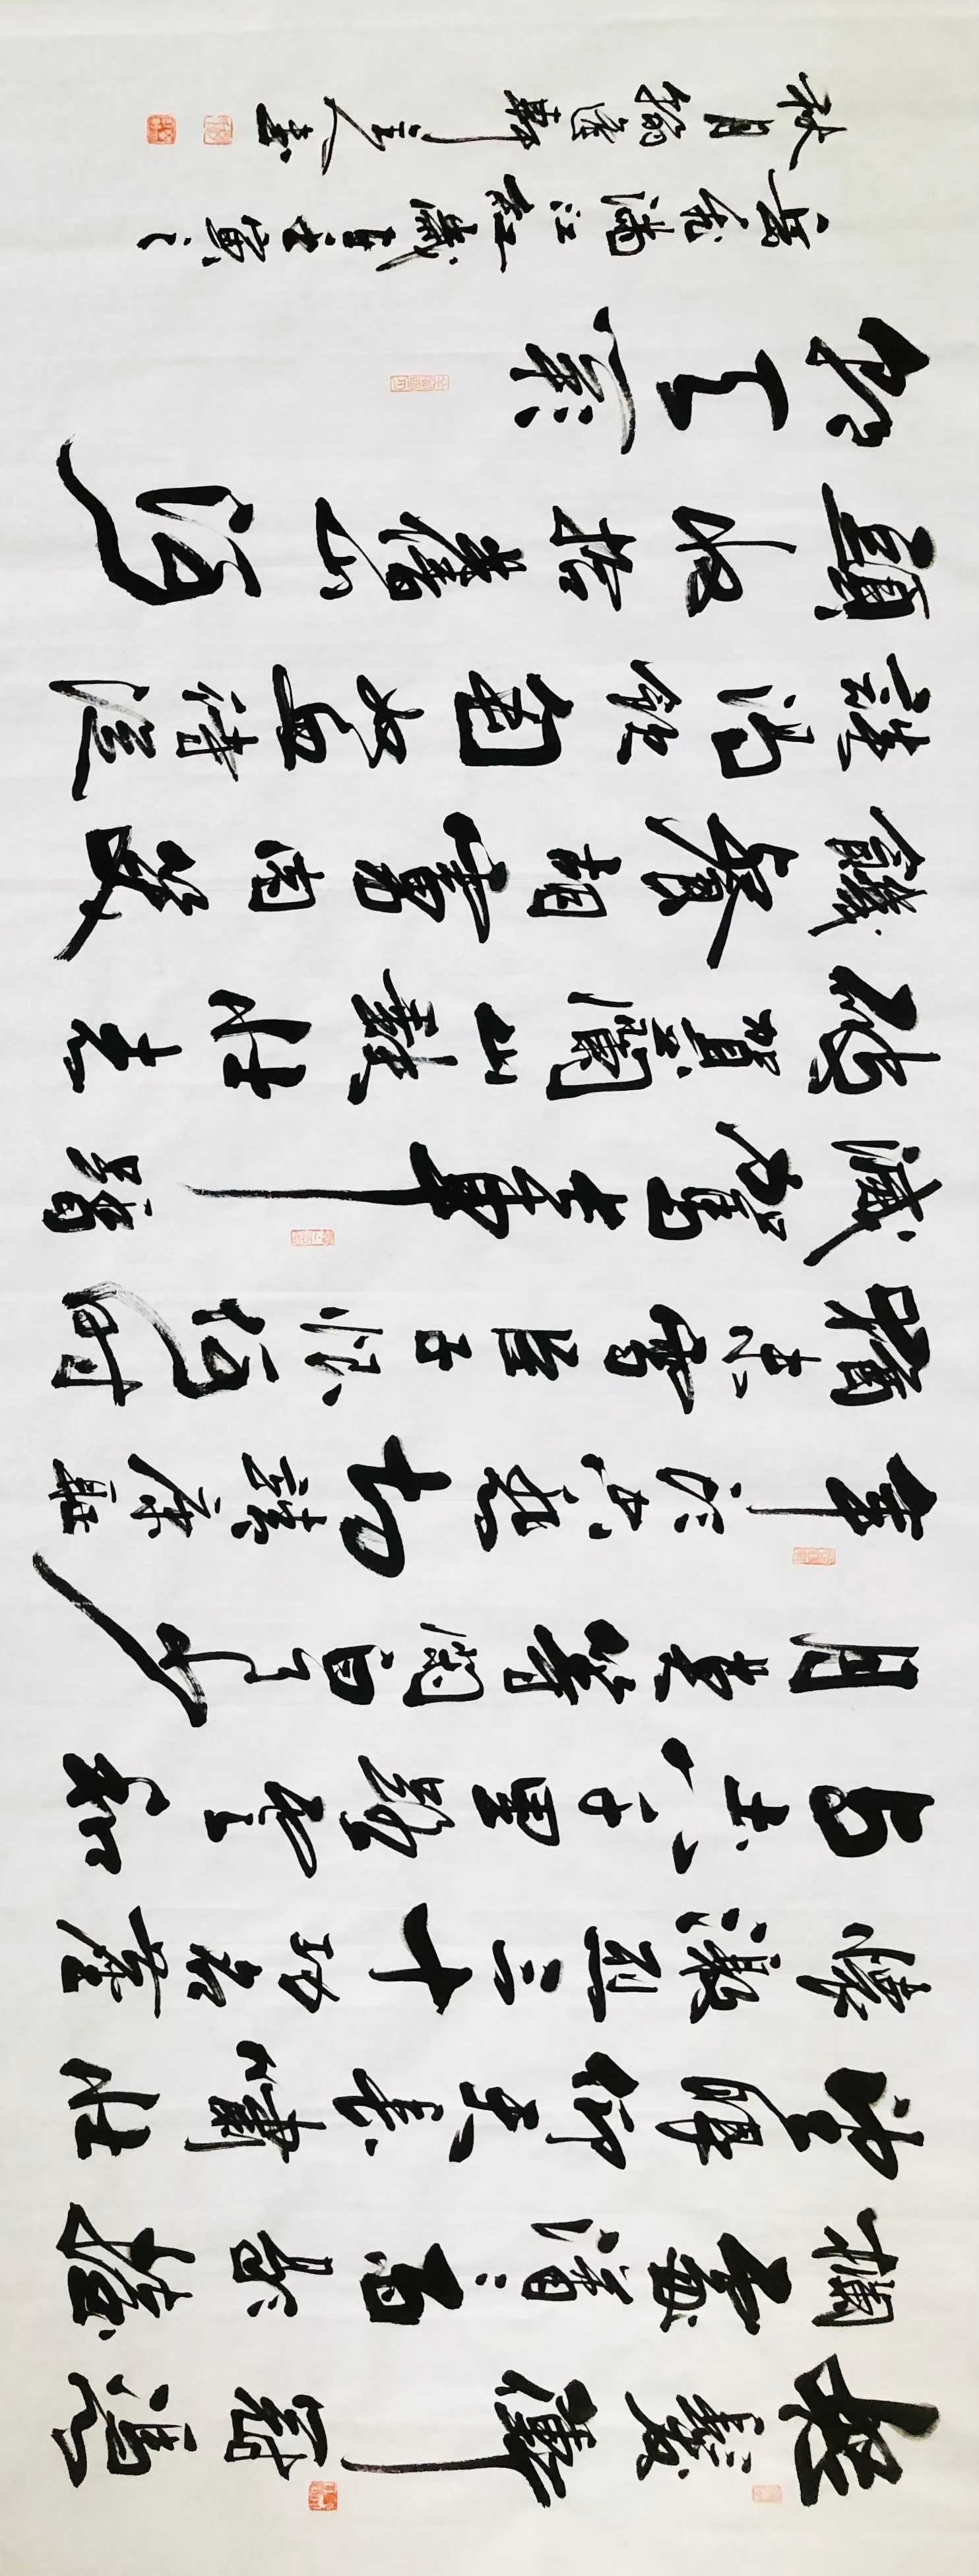 怒髮衝冠憑
欄處瀟瀟雨歇擡
望眼仰天長嘯壯
懷激烈三十功名塵
與土八千里路雲和
月莫等閑白了少
年頭空悲切靖康恥
猶未雪臣子恨何時
滅駕長車踏
破賀蘭山缺壯志
饑餐胡虜肉笑
談渴飲匈奴血待從
頭收拾舊山河
朝天闕
岳飛滿江紅歲在壬寅之
秋月軒主人書